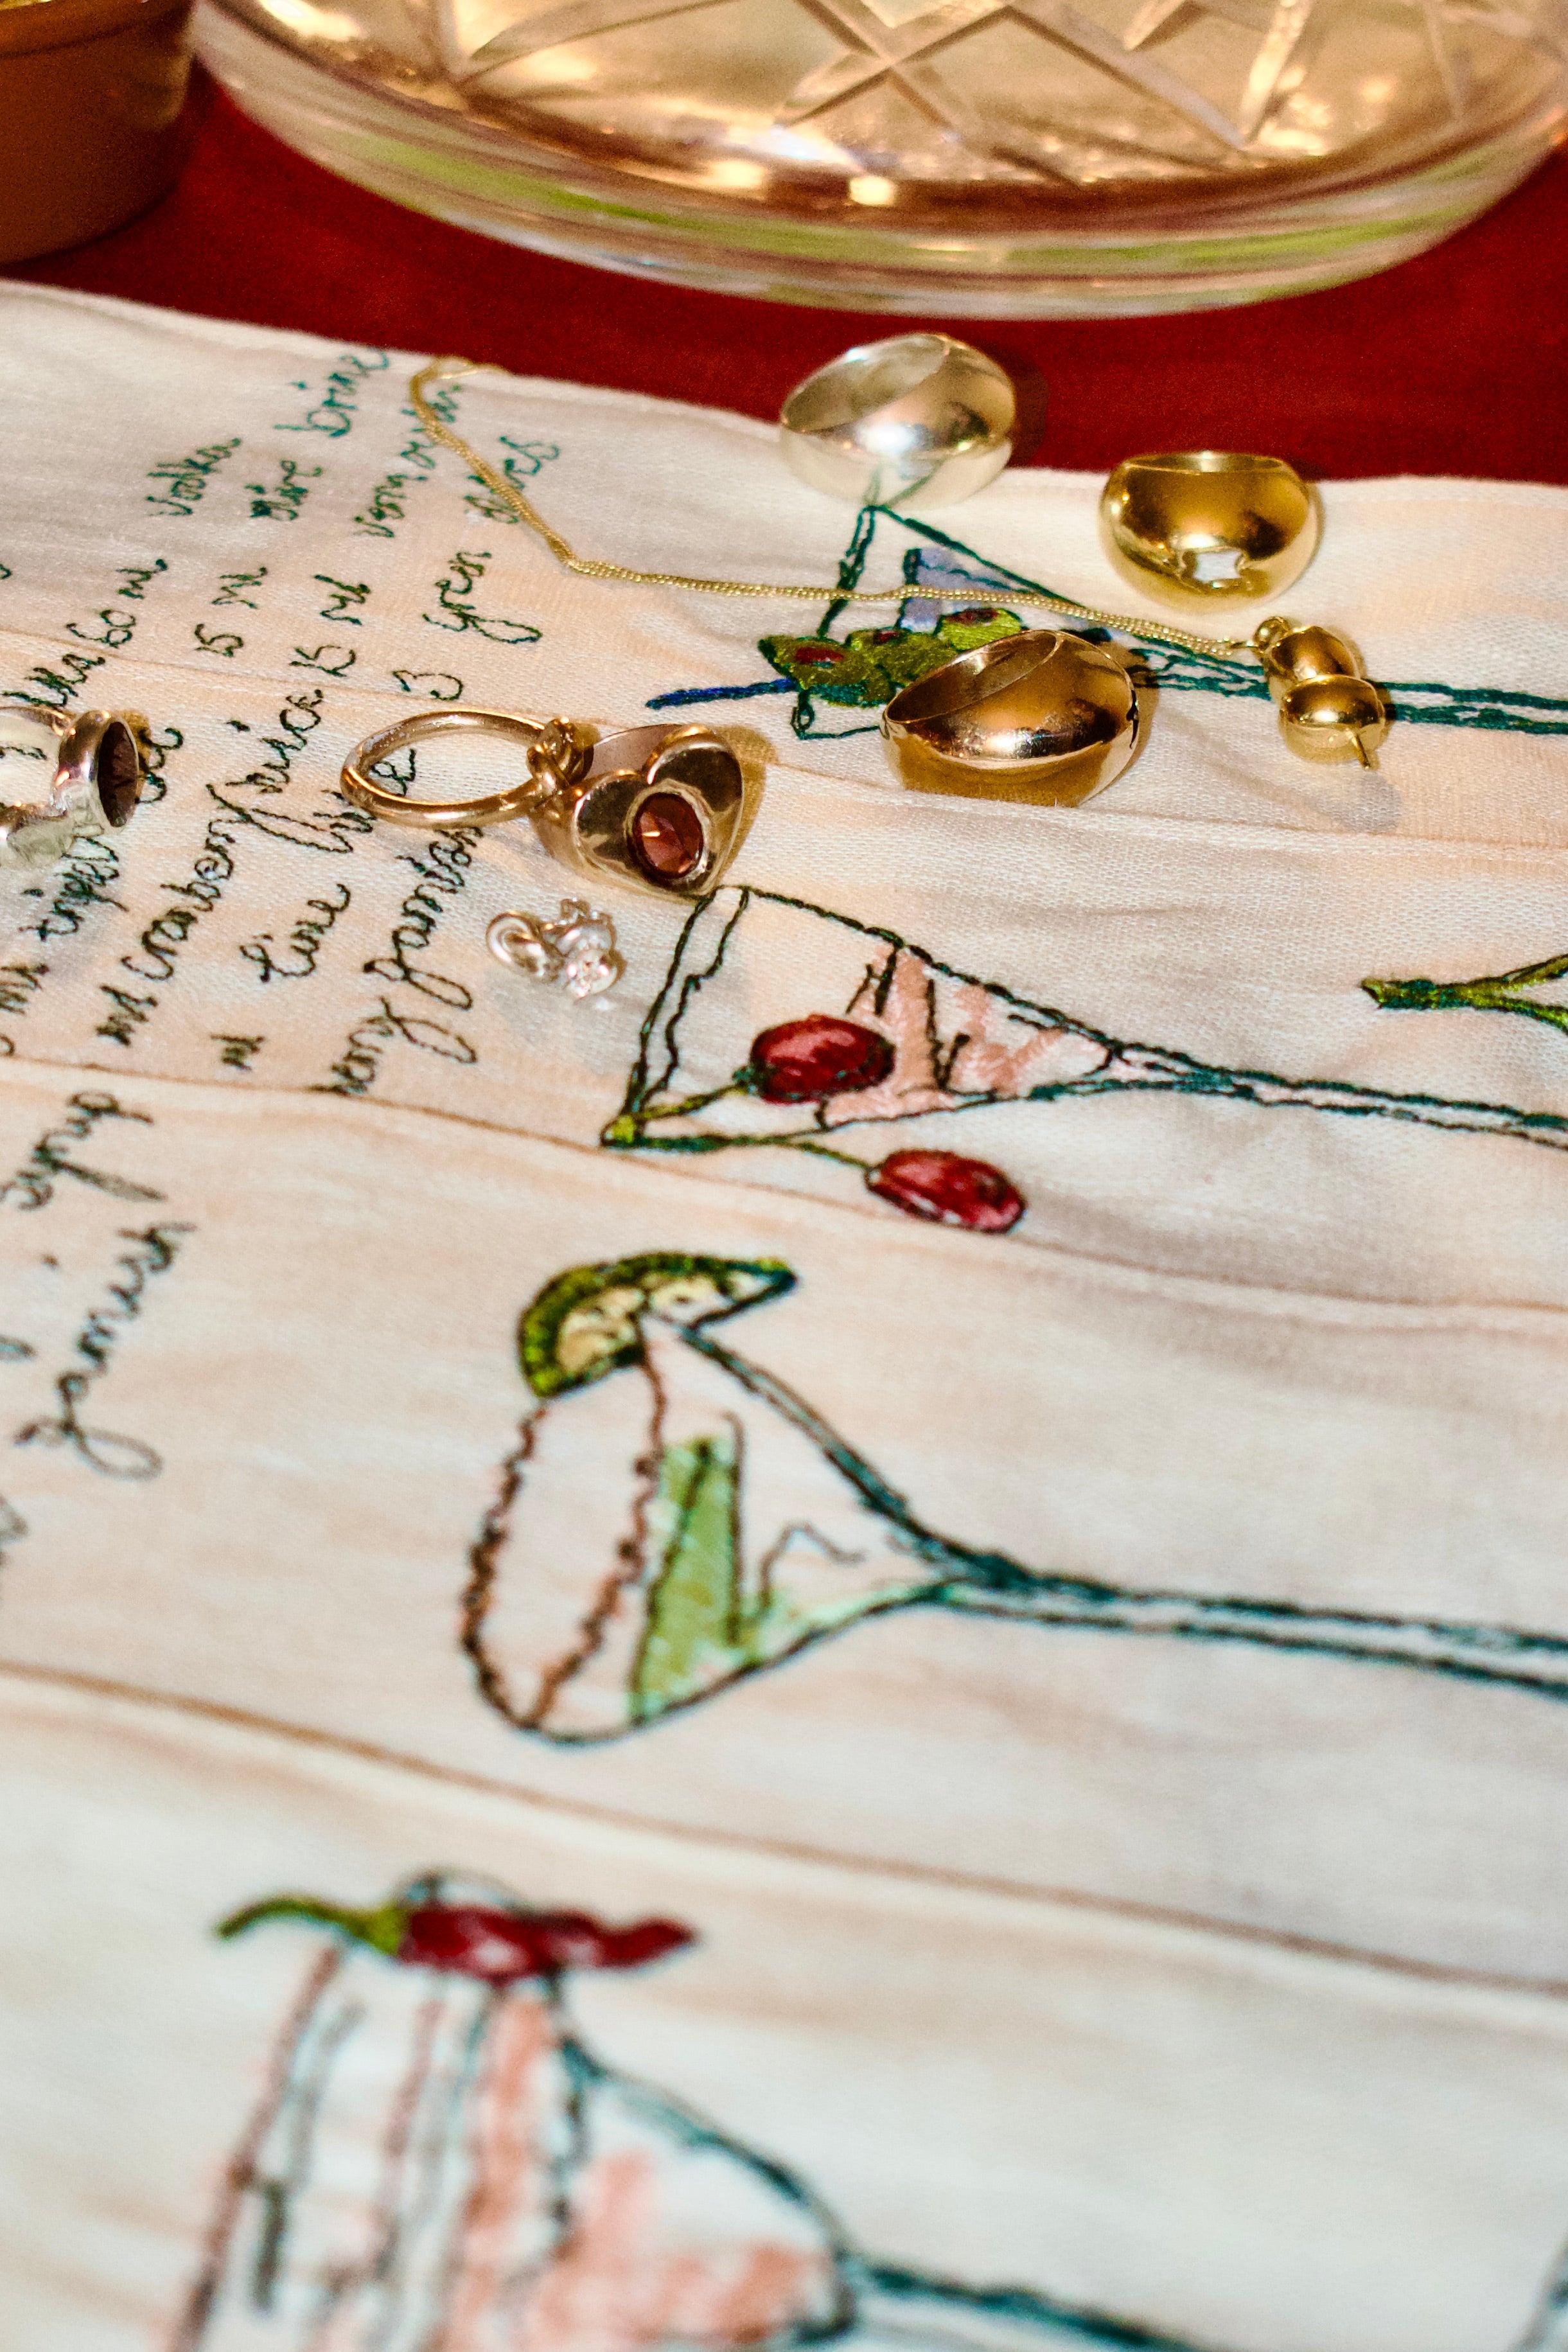 60 ml vodka
15 ml olive brine
15 ml vermouth
3 green olives
vodka
ml triple
ml cranberry juice
ml lime juice
garnish
syrup
garnish